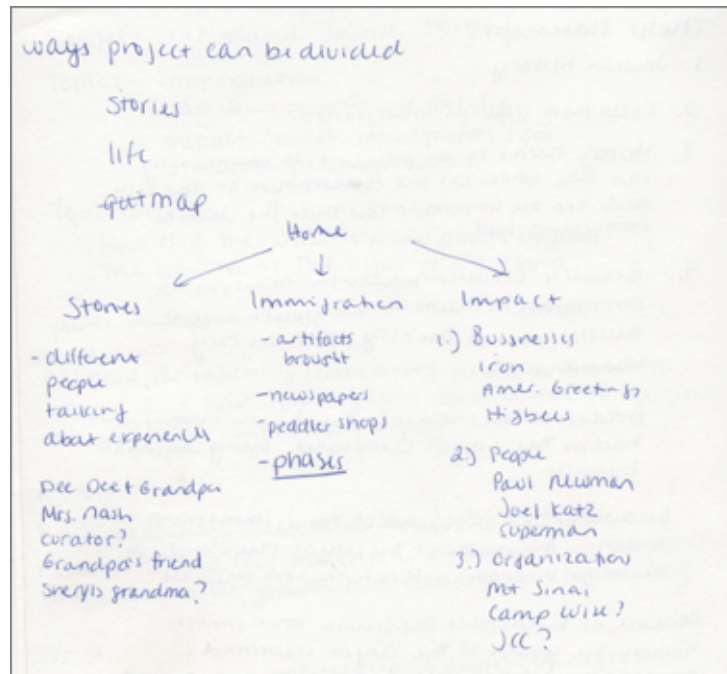 ways project can be divided
Stories
life
put map
Home
Stories
- different
people
talking
about experiences
Dee Dee + Grandpa
Mrs. Nash
curator?
Grandpa's friend
Sheryls grandma?
Immigration
- artifacts
brought
- newspapers
- peddler shops
- phases
Impact
1.) Bussnesses
iron
Amer. Greetings
Higbees
2.) People
Paul Newman
Joel Katz
Superman
3.) Organization
Mt Sinai
Camp Wise?
JCC?